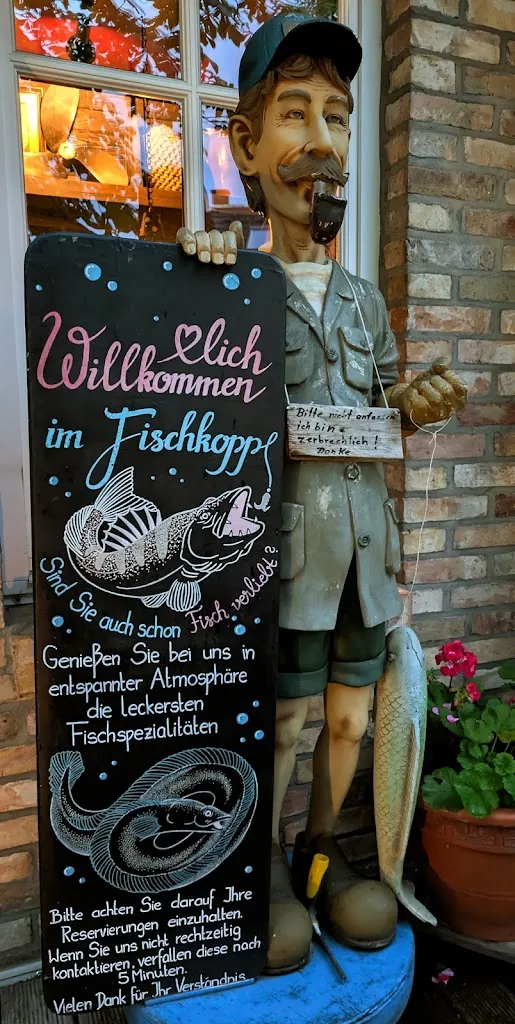 Willkommen
♡lich
im Fischkopp
Sind Sie auch schon Fisch verliebt?
Genießen Sie bei uns in
entspannter Atmosphäre
die leckersten
Fischspezialitäten
Bitte achten Sie darauf Ihre
Reservierungen einzuhalten.
Wenn Sie uns nicht rechtzeitig
kontaktieren, verfallen diese nach
5 Minuten.
Vielen Dank für Ihr Verständnis
Bitte nicht anfassen
ich bin
zerbrechlich!
Danke